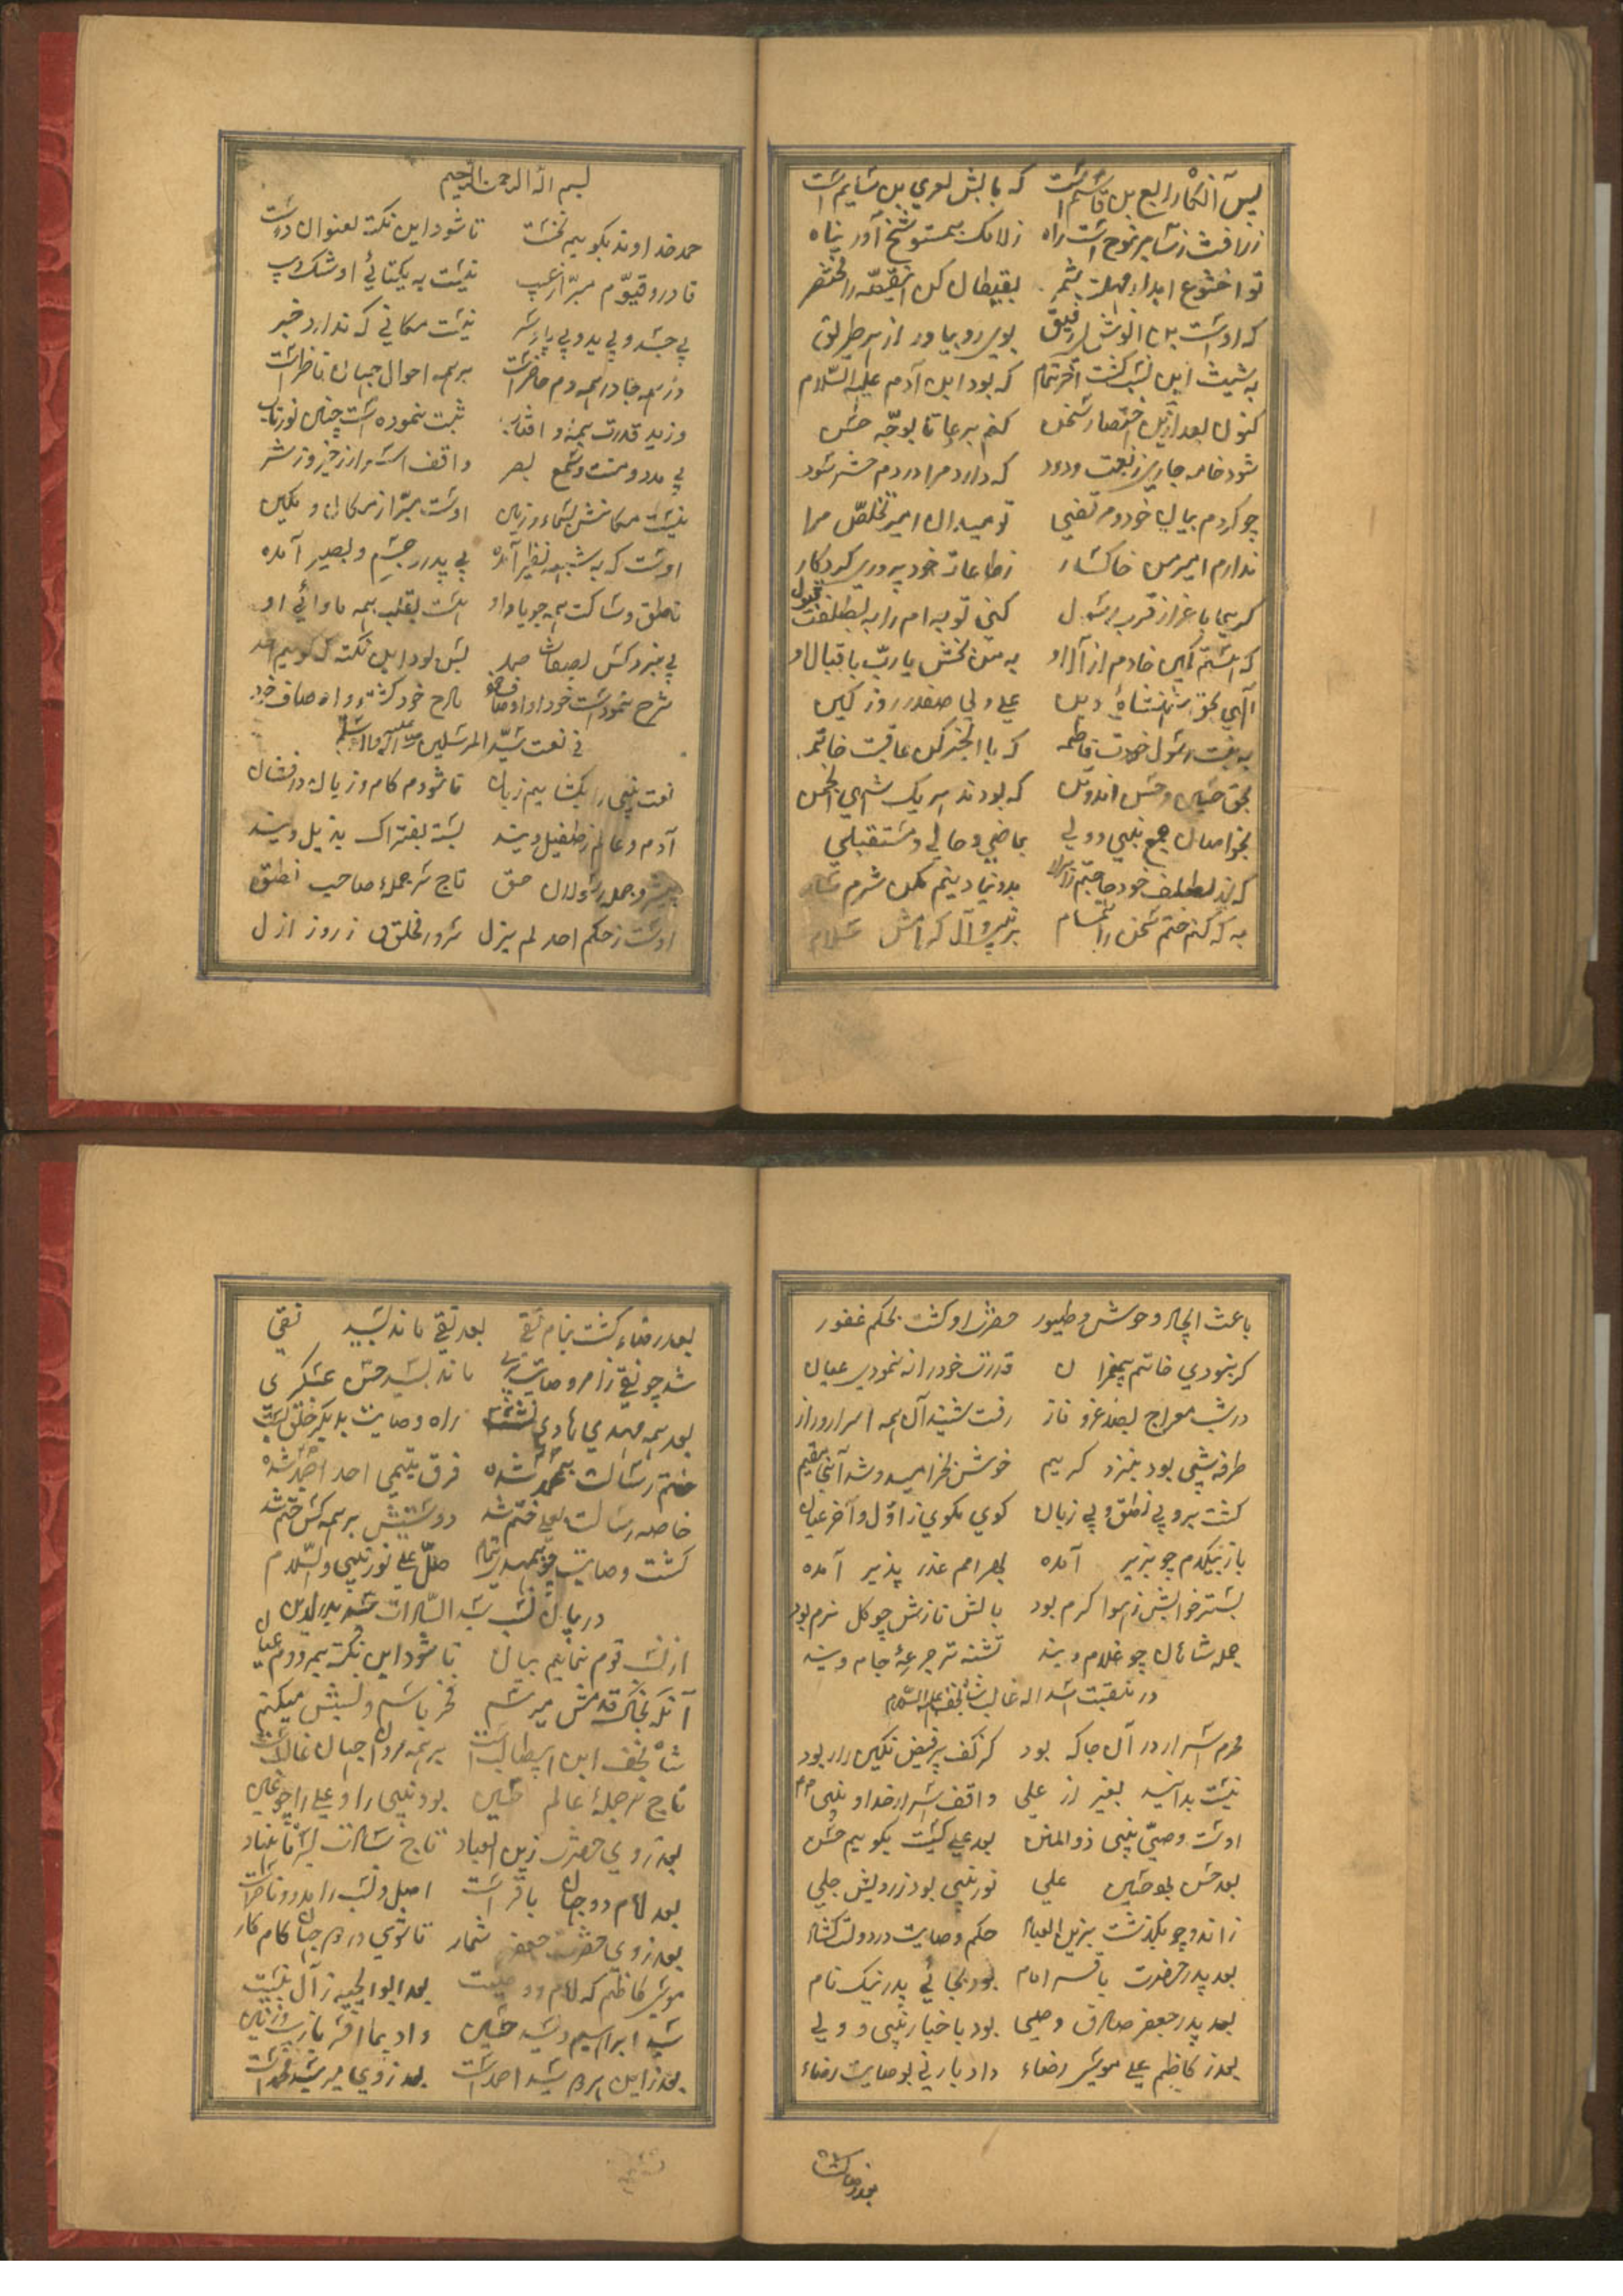 پس آنگاه رابع بن قاسم است که بابش لعری بن سایم است
تو اخنوع ابداء مهلت شمر بقیطال کن القصه را مختصر
که اوست بن انوش ای رفیق بوی رو بیاور از هر طریق
به شیث این نسب گشت آخر تمام که بود ابن آدم علیه السلام
کنون بعد ازین اختصار سخن کنم بر دعا تا بوجه حسن
شود خامه جاری ز نعمت ودود که دارد مرا در دم حشر سود
چو کردم بیان خود و مرتضی تو میدان امیر تخلص مرا
ندارم امیر من خاکسار ز طاعات خود پروری کردگار
کریما باعزاز قرب رسول کنی توبه ام را به لطفت قبول
که هستم کمین خادم از آل او به من بخش یا رب باقبال او
الهی بحق شهنشاه دین علی ولی صفدر روز کین
به بنت رسول خدا فاطمه که بالخیر کن عاقبت خاتمه
بحق حسین و حسن اندو تن که بودند هر یک شه انجمن
بخواصان جمع نبی و ولی بماضی و حالی و مستقبلی
به که کنم ختم سخن را تمام بر نبی و آل که امش سلام
بسم الله الرحمن الرحیم
حمد خداوند بگوییم نخست تا شود این نکته بعنوان درست
قادر و قیوم مبرا ز عیب نیست به یکتائی او شک و ریب
بی جسد و بی ید و بی پا و سر نیست مکانی که ندارد خبر
در همه جا در همه دم حاضر است بر همه احوال جهان ناظر است
بی مدد و منت و سمع بصر واقف اسرار ز خیر و ز شر
نیست مکانش بسماء و زمین اوست مبرا ز مکان و مکین
اوست که بی شبه نظیر آمده بی بدر چشم و بصیر آمده
ناطق و ساکت همه جویای او هست بقلب همه ماوائی او
بی خبر و کس بصفات صمد پس بود این نکته که گوییم احد
شرح نمود است خود اوصاف خود مادح خود گشته و اوصاف خود
فی نعت سید المرسلین صلی الله علیه و آله و سلم
نعت نبی را بگشاییم زبان تا شودم کام و زبان درفشان
آدم و عالم ز طفیل ویند بسته بفتراک بذیل ویند
پیشرو جمله رسولان حق تاج سر جملهء صاحب نطق
اوست ز حکم احد لم یزل سرور مخلوق ز روز ازل
باعث ایجاد وحوش و طیور حضرت او گشت بحکم غفور
گر ننمودی خاتم پیغمبران قدرت خود را ننمودی عیان
در شب معراج بصد عز و ناز رفت شنید آن همه اسرار و راز
طرفه شبی بود بنزد کریم خوش بخرامید و شد آنجا مقیم
گشت برو بی نطق و بی زبان گوی مگوی ز اول و آخر عیان
باز بیکدم چو بزیر آمده بهر امم عذر پذیر آمده
بستر خوابش ز هوا گرم بود بالش نازش چو گل نرم بود
جمله شاهان چو غلام ویند تشنه تر جرعهٔ جام ویند
در منقبت اسد الله غالب شاه نجف علیه السلام
محرم اسرار در آن جا که بود کز کف پر فیض نگین را ربود
نیست بدانید بغیر از علی واقف اسرار خدا و نبی
اوست وصی نبی ذوالمنن بعد علی کیست بگوییم حسن
بعد حسن بود حسین علی نور نبی بود ز رویش جلی
زاندو چو بگذشت بزین العباد حکم وصایت در دولت گشاد
بعد پدر حضرت باقر امام بود بجائی پدر نیک نام
بعد پدر جعفر صادق وصی بود باخبار نبی و ولی
بعد ز کاظم علی موسی رضاء داد باو نی بوصایت رضاء
بعد رضا گشت
بعد رضاء گشت بنام تقی بعد تقی ماند بسید نقی
شد چو نقی را امر وصایت بری ماند بسید حسن عسکری
بعد همه مهدی هادی نشست راه وصایت بدیگر خلق بست
ختم رسالت بمحمد شده فرق میمی احد احمد شده
خاصه رسالت بعلی ختم شد دوستیش بر همه کس حتم شد
گشت وصایت چو بمهدی تمام صل علی نور نبی والسلام
در بیان نسب سید السادات سید بدر الدین
از نسب قوم نمایم بیان تا شود این نکته بمردم عیان
آنکه بخاک قدمش میرسم فخر باسم و نسبش میکنم
شاه نجف ابن ابیطالب است بر همه مردان جهان غالب است
تاج سر جملهٔ عالم حسین بود نبی را و علی را چو عین
بعد ز وی حضرت زین العباد تاج سادات بسر تا نهاد
بعد امام دو جهان باقر است اصل و نسب را بدو و ناصر است
بعد ز وی حضرت جعفر شمار تا شوی در دو جهان کام کار
سید ابراهیم و سید حسین
بعد ز این هر دو سید احمد است بعد ز وی میر سید محمد است